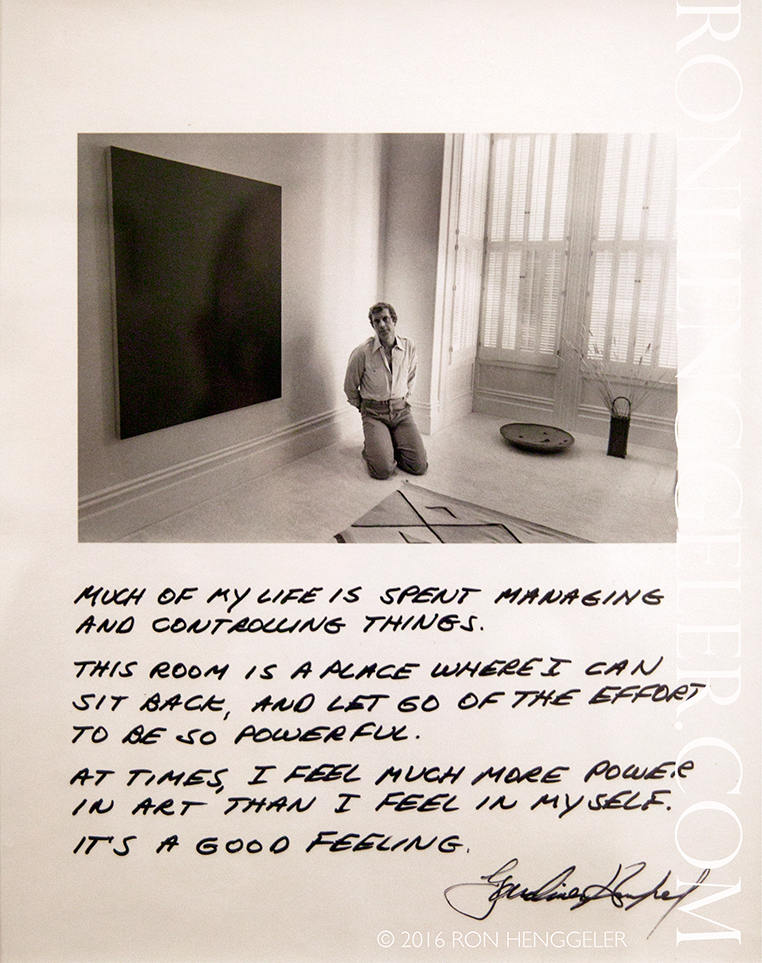 MUCH OF MY LIFE IS SPENT MANAGING
AND CONTROLLING THINGS.
THIS ROOM IS A PLACE WHERE I CAN
SIT BACK, AND LET GO OF THE EFFORT
TO BE SO POWERFUL.
AT TIMES, I FEEL MUCH MORE POWER
IN ART THAN I FEEL IN MYSELF.
IT'S A GOOD FEELING.
© 2016 RON HENGGELER
RONHENGGELER.COM